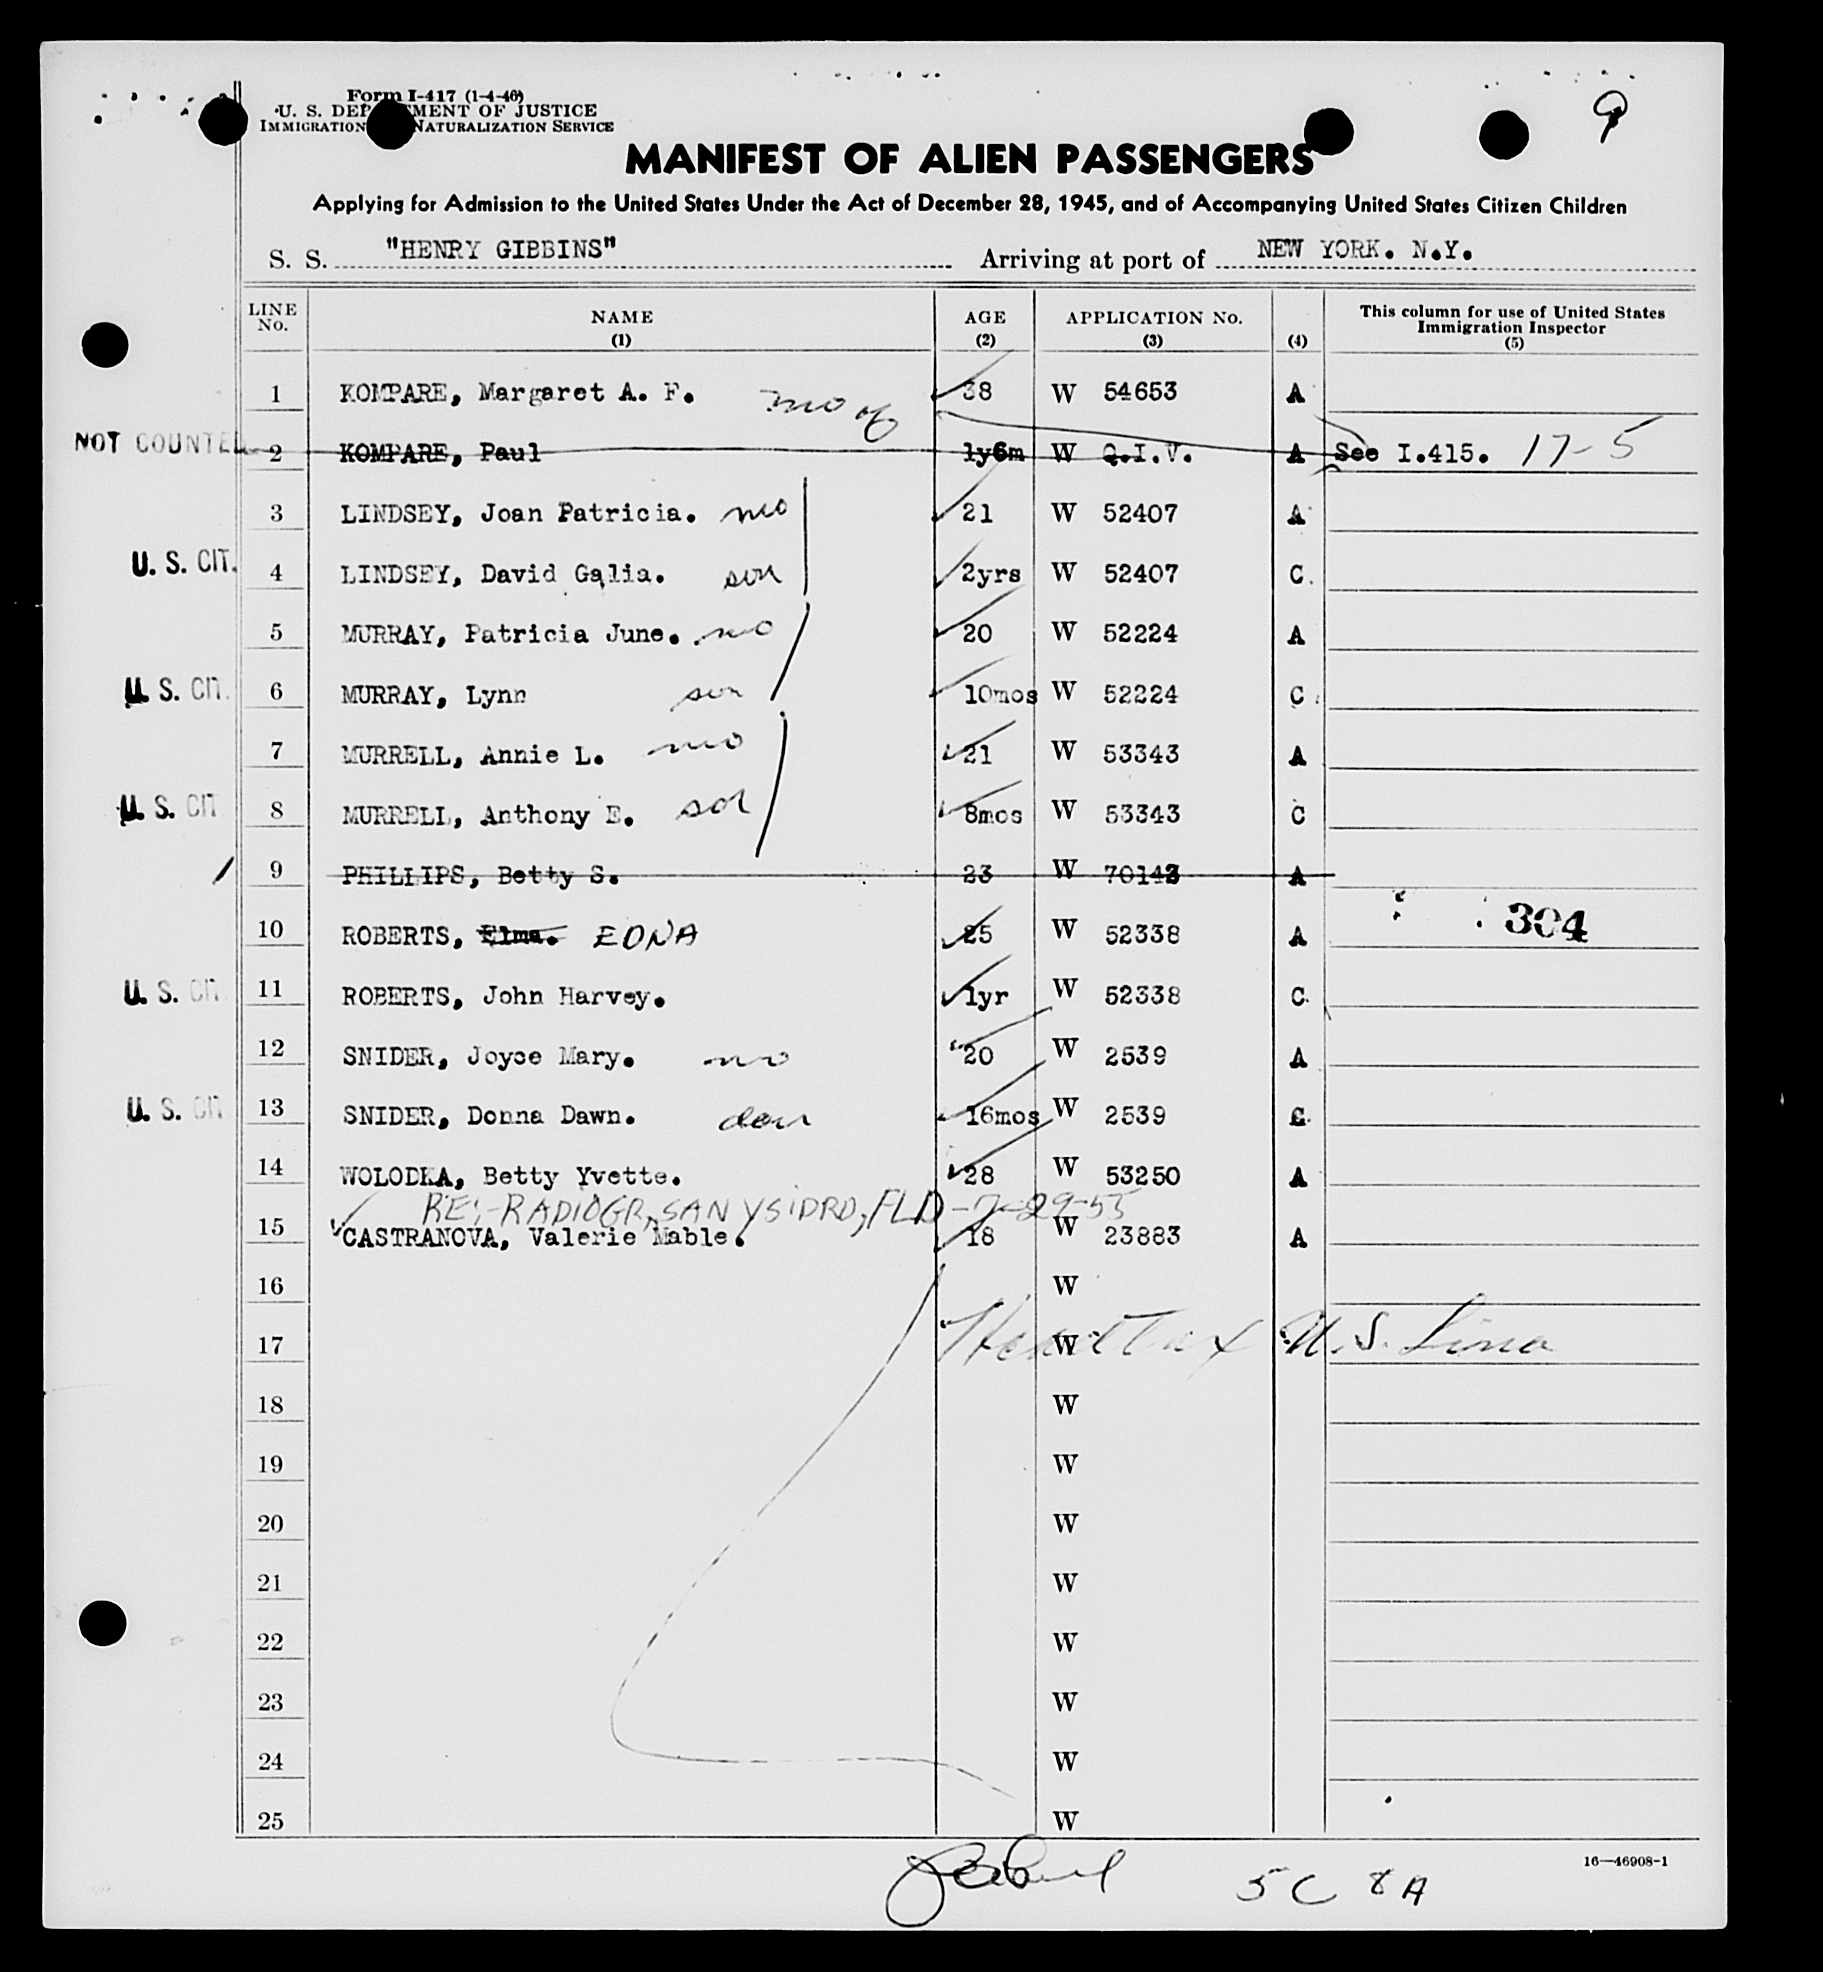 9
Form I-417 (1-4-46)
U. S. DEP MENT OF JUSTICE
IMMIGRATION NATURALIZATION SERVICE
MANIFEST OF ALIEN PASSENGERS
Applying for Admission to the United States Under the Act of December 28, 1945, and of Accompanying United States Citizen Children
S. S. "HENRY GIBBINS" Arriving at port of NEW YORK. N.Y.
LINE No. NAME (1) AGE (2) APPLICATION No. (3) (4) This column for use of United States Immigration Inspector (5)
1 KOMPARE, Margaret A. F. mo of 38 W 54653 A
NOT COUNTED 2 KOMPARE, Paul 1y6m W Q.I.V. A See I.415. 17-5
3 LINDSEY, Joan Patricia. mo 21 W 52407 A
U. S. CIT. 4 LINDSEY, David Galia. son 2yrs W 52407 C.
5 MURRAY, Patricia June. mo 20 W 52224 A
U. S. CIT. 6 MURRAY, Lynn son 10mos W 52224 C
7 MURRELL, Annie L. mo 21 W 53343 A
U. S. CIT 8 MURRELL, Anthony E. son 8mos W 53343 C
9 PHILLIPS, Betty S. 23 W 70143 A
10 ROBERTS, Elma. EDNA 25 W 52338 A 304
U. S. CIT. 11 ROBERTS, John Harvey. 1yr W 52338 C.
12 SNIDER, Joyce Mary. mo 20 W 2539 A
U. S. CIT 13 SNIDER, Donna Dawn. dau 16mos W 2539 C.
14 WOLODKA, Betty Yvette. 28 W 53250 A
RE:-RADIOGR, SAN YSIDRO, FLD-7-29-55
15 CASTRANOVA, Valerie Mable. 18 W 23883 A
16 W
17 W Head Tax U.S. Lina
18 W
19 W
20 W
21 W
22 W
23 W
24 W
25 W
16—46908-1
5C 8A